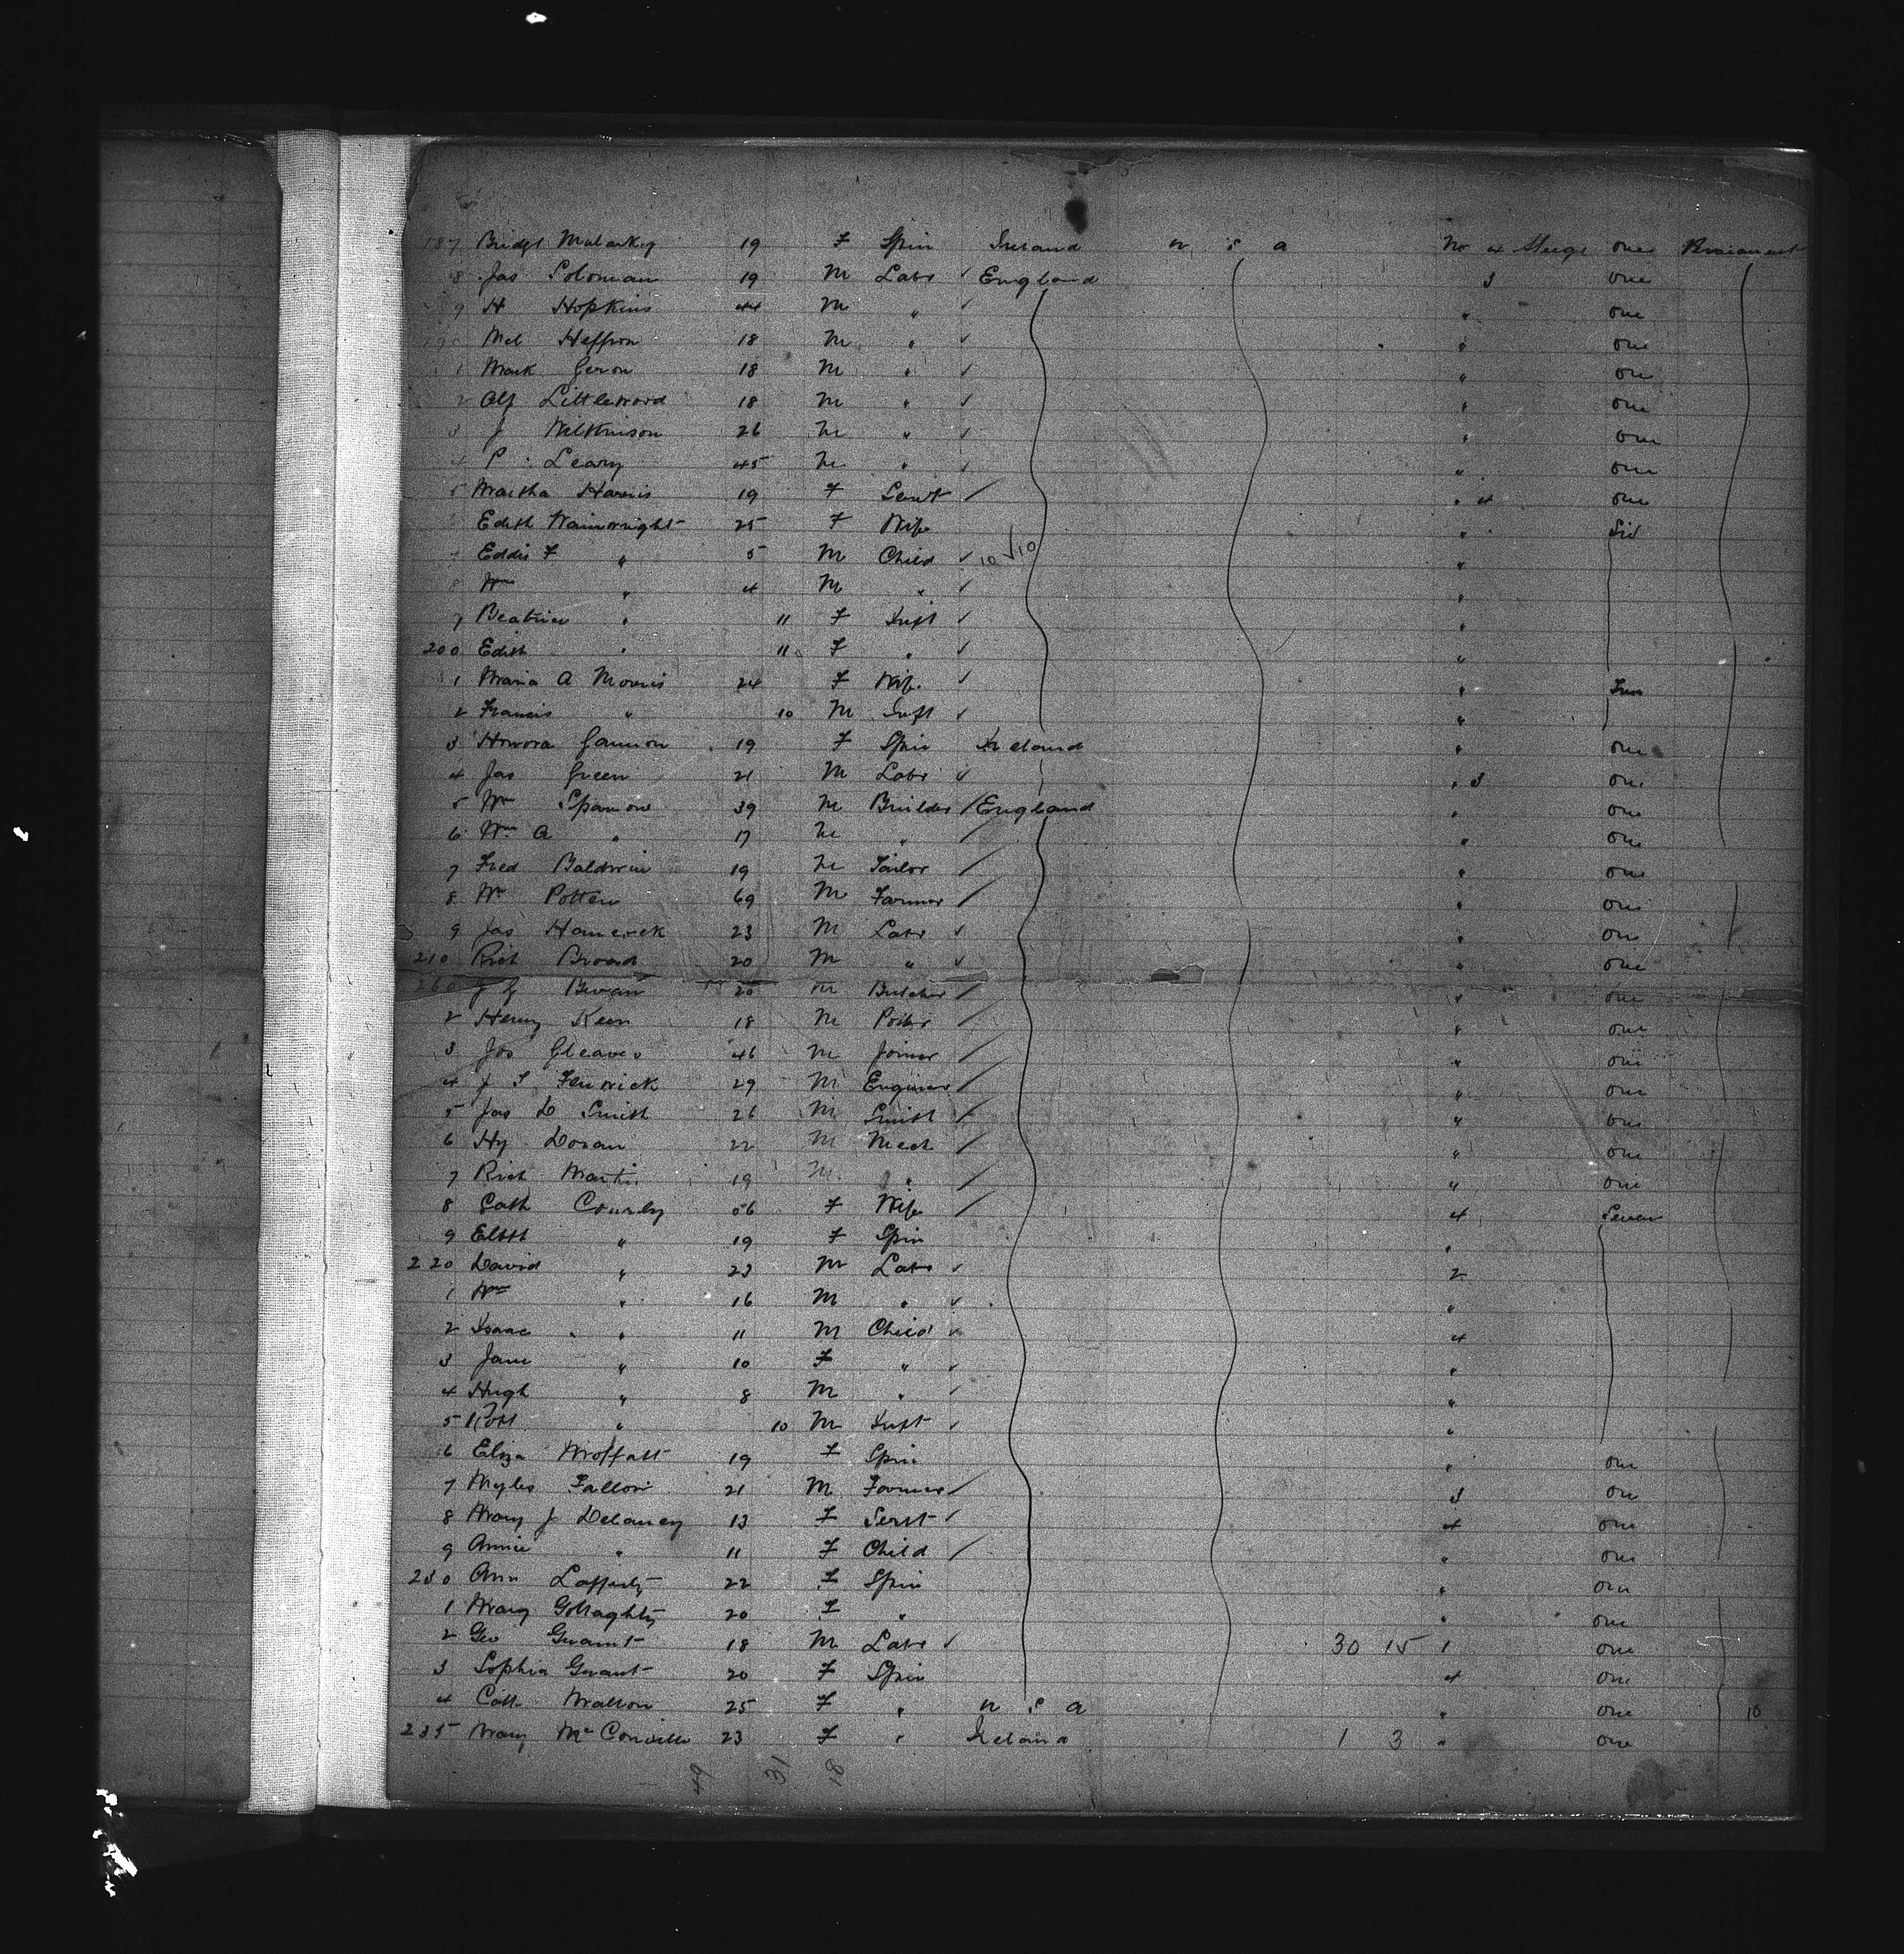 187 Bridgt Mularkey 19 F Spin Ireland U S A No 4 Steege one Permanent
8 Jas Soloman 19 M Labr ✓ England 3 one
9 H Hopkins 44 M " ✓ " one
190 Mcl Heffron 18 M " ✓ " one
1 Mark Geron 18 M " ✓ " one
2 Alf Littlewood 18 M " ✓ " one
3 J Wilkinson 26 M " ✓ " one
4 P Leary 45 M " ✓ " one
5 Martha Harris 19 F Servt / " 4 one
Edith Wainwright 25 F Wife "
Eddis F " 5 M Child ✓ 10 ✓10 "
8 Wm " 4 M " ✓ "
9 Beatrice " 11 F Inft ✓ "
200 Edith " 11 F " ✓ "
1 Maria A Morris 24 F Wife ✓ "
2 Francis " 10 M Inft ✓ "
3 Honora Gannon 19 F Spin Ireland " one
4 Jas Green 21 M Labr ✓ " 3 one
5 Wm Sparrow 39 M Builder / England " one
6 Wm A " 17 M " / " one
7 Fred Baldwin 19 M Tailor / " one
8 Wm Potten 69 M Farmer / " one
9 Jas Hancock 23 M Labr ✓ " one
210 Rich Broad 20 M " ✓ " one
J G Bevan 20 M Butcher / " one
2 Henry Keen 18 M / " one
3 Jos Gleaves 46 M Joiner / " one
4 J T Fenwick 29 M Engineer / " one
5 Jas D Smith 26 M Smith / " one
6 Hy Doran 22 M Mech / " one
7 Rich Martin 19 M " / " one
8 Cath 56 F Wife / 4 Seven
9 Elbth " 19 F Spin "
220 David " 23 M Labr ✓ 2
1 Wm " 16 M " ✓ "
2 Isaac " 11 M Child ✓ 4
3 Jane " 10 F " ✓ "
4 Hugh " 8 M " ✓ "
5 Robt " 10 M Inft ✓ "
6 Eliza Moffatt 19 F Spin " one
7 Myles Fallon 21 M Farmer / 3 one
8 Mary J Delaney 13 F Servt / 4 one
9 Annie " 11 F Child / " one
230 Ann Lafferty 22 F Spin " one
1 Mary 20 F " " one
2 Geo Grant 18 M Labr ✓ 30 15 1 one
3 Sophia Grant 20 F Spin 4 one
4 Cath Walton 25 F " U S A " one 10
235 Mary McConville 23 F " Ireland 1 3 " one
49 31 18